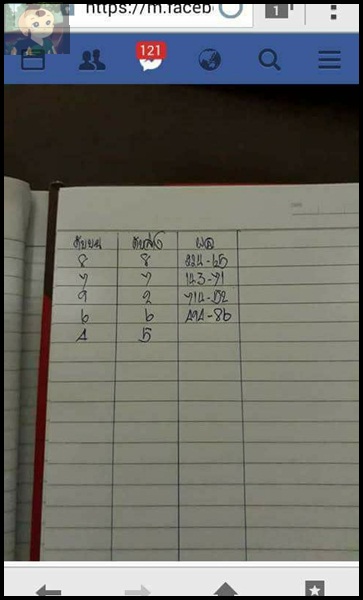 https://m.faceb
1
121
ตัวบน ตัวล่าง ผล
8 8 224-65
7 7 143-71
9 2 714-52
6 6 494-86
4 5